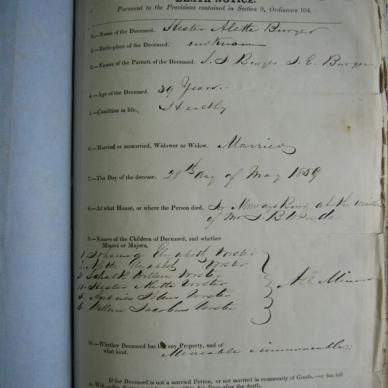 DEATH NOTICE.
Pursuant to the Provisions contained in Section 9, Ordinance 104.
1.—Name of the Deceased. Hester Aletta Burger
2.—Birth-place of the Deceased. unknown
3.—Names of the Parents of the Deceased. S. J. Burger S. E. Burger
4.—Age of the Deceased. 39 Years.
5.—Condition in life.
6.—Married or unmarried, Widower or Widow. Married
7.—The Day of the decease. 28th day of May 1859
8.—At what House, or where the Person died. at the
of Mr
9.—Names of the Children of Deceased, and whether
Majors or Minors.
1 Johanna Elizabeth Vorster
2 Aletta Vorster
3 Schalk Willem Vorster
4 Hester Aletta Vorster
5 Vorster
6 Willem Jacobus Vorster
All Minors
10.—Whether Deceased has left any Property, and of
what kind. Moveable & immoveable
If the Deceased is not a married Person, or not married in community of Goods,—or has left